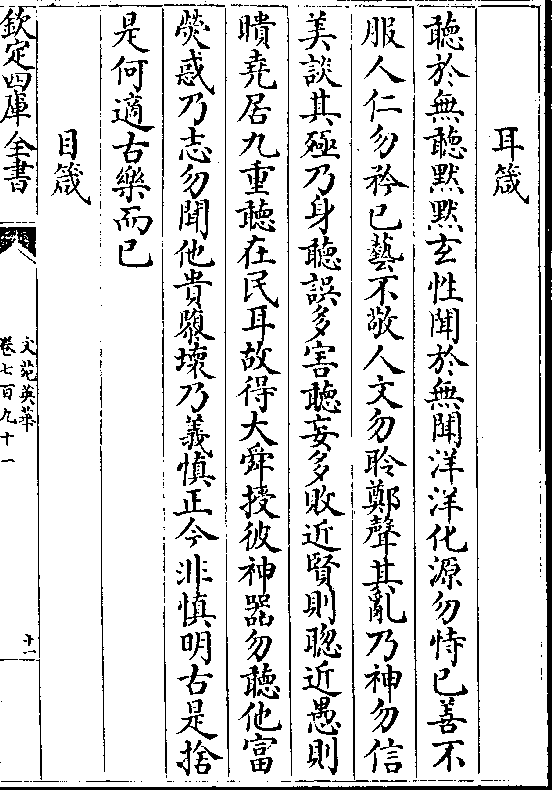 耳箴
聽於無聽默默玄性聞於無聞洋洋化源勿恃已善不
服人仁勿矜已藝不敬人文勿聆鄭聲其亂乃神勿信
美談其殛乃身聽誤多害聽妄多敗近賢則聰近愚則
聵堯居九重聽在民耳故得大舜授彼神器勿聽他富
熒惑乃志勿聞他貴隳壞乃義慎正今非慎明古是捨
是何適古樂而已
目箴
欽定四庫全書
文苑英華
卷七百九十一
十一